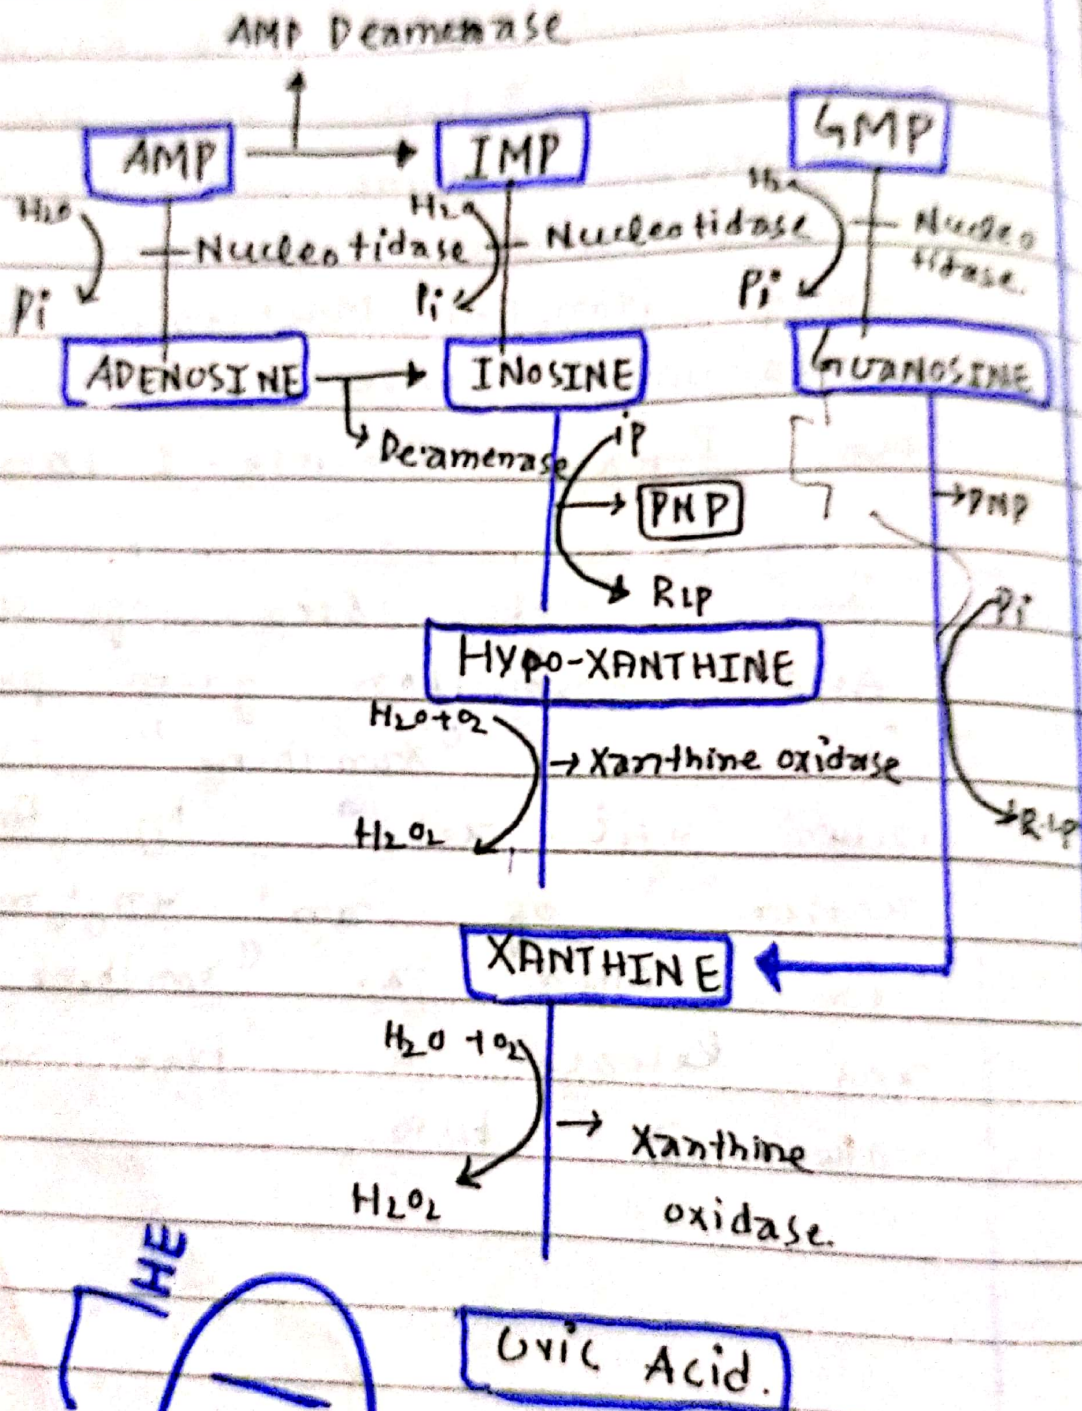 AMP Deamenase
AMP
IMP
GMP
H₂O
Nucleotidase
Pi
H₂O
Nucleotidase
Pi
Nucleo
tidase.
Pi
ADENOSINE
INOSINE
GUANOSINE
Deamenase
iP
PNP
R1P
PNP
Pi
R1P
Hypo-XANTHINE
H₂O+O₂
Xanthine oxidase
H₂O₂
XANTHINE
H₂O +O₂
Xanthine
oxidase.
H₂O₂
THE
Uric Acid.